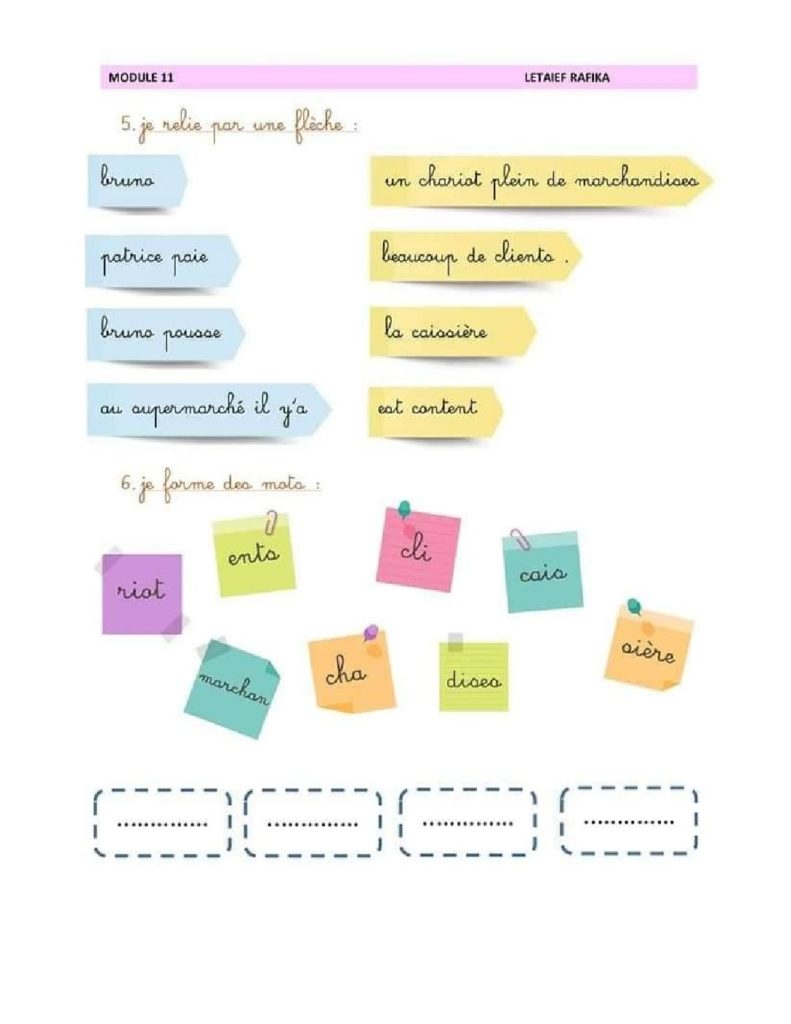 MODULE 11 LETAIEF RAFIKA
5. je relie par une flèche :
bruno
un chariot plein de marchandises
patrice paie
beaucoup de clients .
bruno pousse
la caissière
au supermarché il y'a
est content
6. je forme des mots :
riot
ents
cli
cais
sière
marchan
cha
dises
.............. .............. .............. ..............